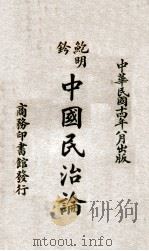 中華民國十四年八月出版
鮑明鈐
中國民治論
商務印書館發行
www.mtoou.info